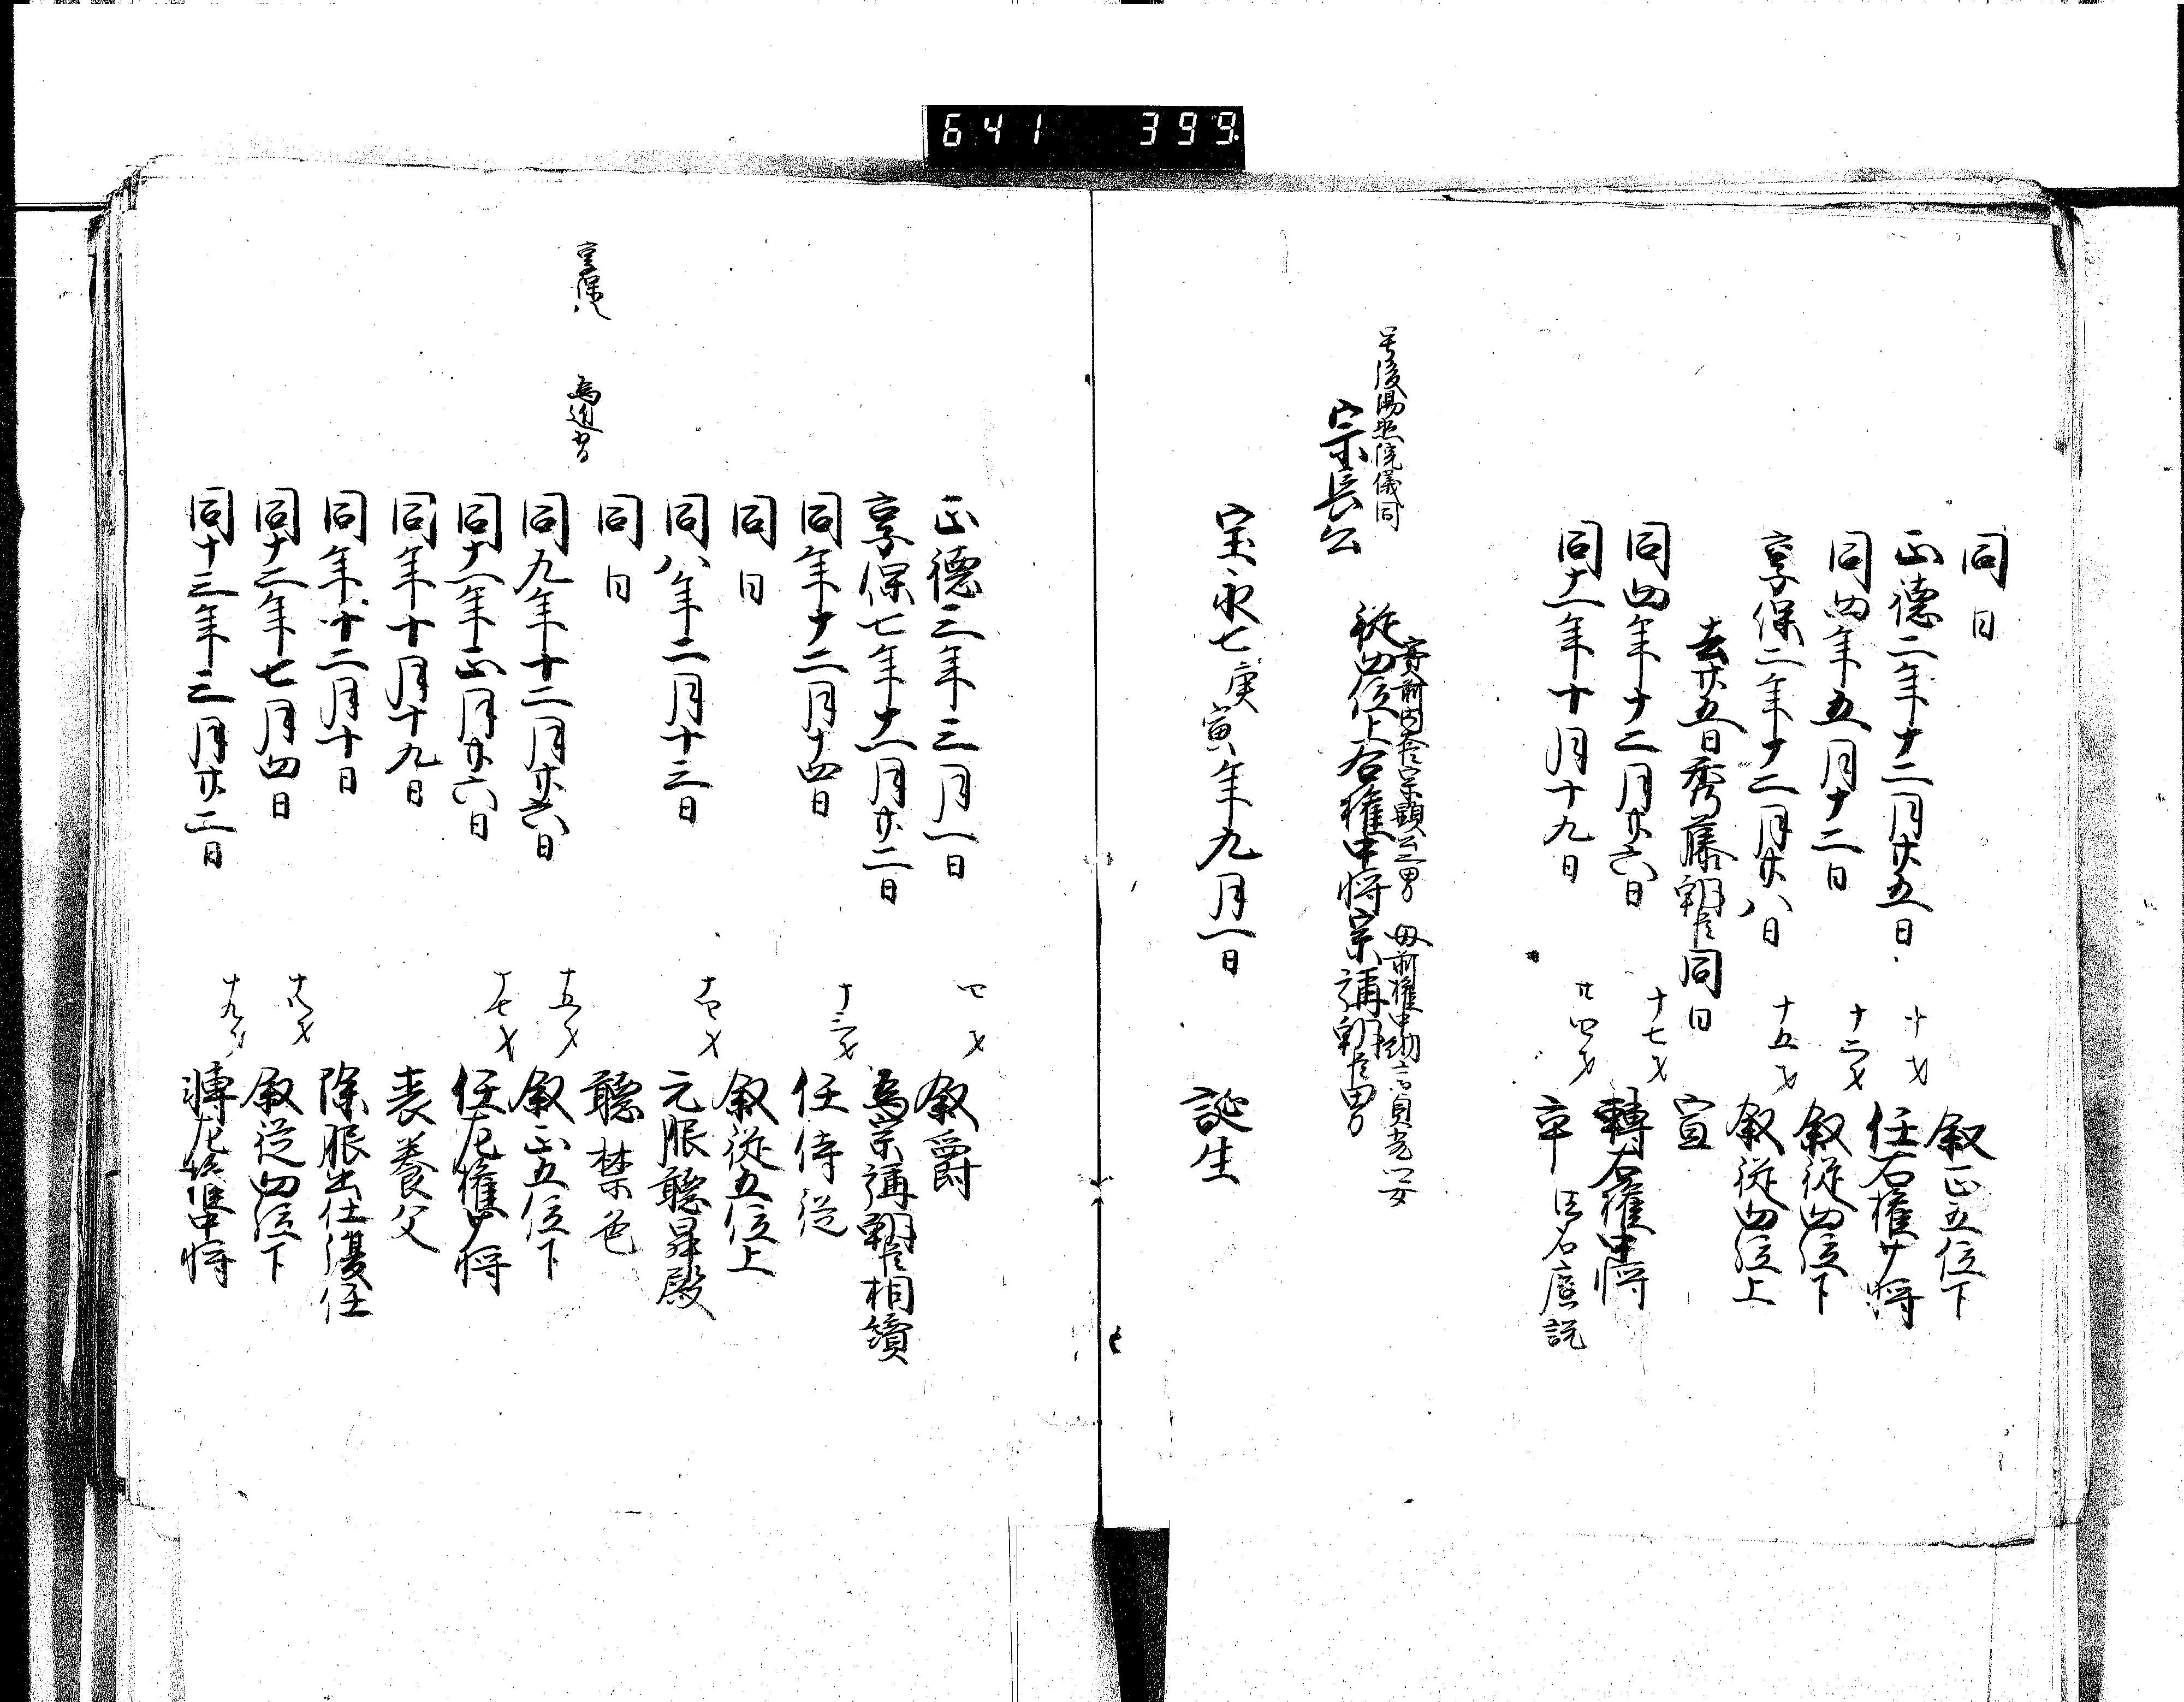 641 399
同日 叙正五位下
正徳二年十二月廿五日 十才 任右権少将
同四年五月十二日 十二才 叙従四位下
享保二年十二月廿八日 十五才 叙従四位上
去廿五日秀藤朝臣同日 宣
同四年十二月廿六日 十七才 轉右権中将
同十一年十月十九日 廿四才 卒 法名 説
号後陽照院儀同
宗長公
実前内大臣宗顕公二男 母前権中納言貞光卿女
従四位上右権中将宗講朝臣男
宝永七庚寅年九月一日 誕生
正徳三年三月一日 四才 叙爵
享保七年十一月廿二日 為宗講朝臣相續
同年十二月十四日 十三才 任侍従
同日 叙従五位上
同八年二月十三日 十四才 元服聴昇殿
同日 聴禁色
享保八 為近習
同九年十二月廿六日 十五才 叙正五位下
同十一年正月廿六日 十七才 任左権少将
同年十月十九日 喪養父
同年十二月十日 除服出仕復任
同十二年七月四日 十八才 叙従四位下
同十三年三月廿二日 十九才 轉左権中将